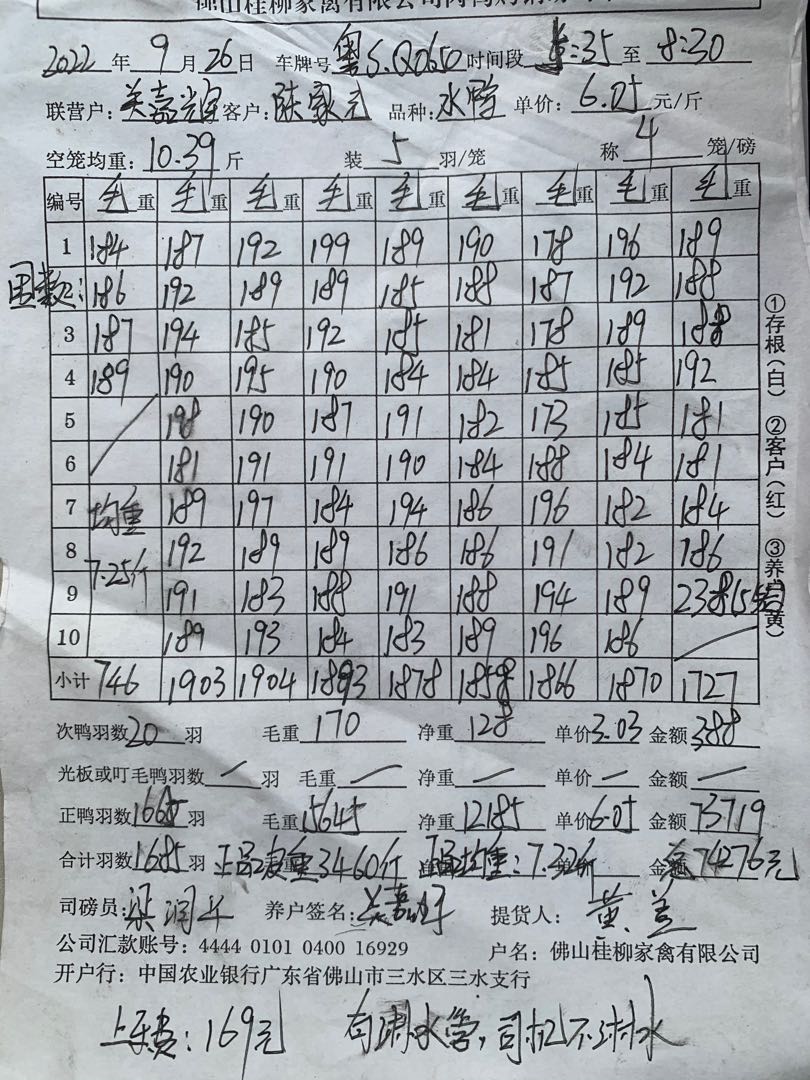 佛山桂柳家禽有限公司
2022 年 9 月 26 日 车牌号 粤S.Q0650 时间段 :35 至 8:30
联营户: 关嘉 客户: 陈家元 品种: 水鸭 单价: 6.05 元/斤
空笼均重: 10.39 斤 装 5 羽/笼 称 4 笼/磅
编号 毛重 毛重 毛重 毛重 毛重 毛重 毛重 毛重 毛重
1 184 187 192 199 189 190 178 196 189
围数: 186 192 189 189 185 188 187 192 188
3 187 194 185 192 185 181 178 189 188
4 189 190 195 190 184 184 185 185 192
5 198 190 187 191 182 173 185 181
6 181 191 191 190 184 188 184 181
7 均重 189 197 184 194 186 196 182 184
8 7.25斤 192 189 189 186 186 191 182 186
9 191 183 188 191 188 194 189 238(5
10 189 193 184 183 189 196 186
小计 746 1903 1904 1893 1878 1858 1866 1870 1727
次鸭羽数 20 羽 毛重 170 净重 128 单价 3.03 金额 388
光板或叮毛鸭羽数 / 羽 毛重 / 净重 / 单价 / 金额 /
正鸭羽数 1665 羽 毛重 15645 净重 12185 单价 6.05 金额 73719
合计羽数 1685 羽 正品皮重3460斤 均重:7.32斤 74276元
司磅员: 梁润 养户签名: 关嘉 提货人: 黄
公司汇款账号: 4444 0101 0400 16929 户名: 佛山桂柳家禽有限公司
开户行: 中国农业银行广东省佛山市三水区三水支行
上车费: 169元 有淋水管,司机不淋水
①存根(白) ②客户(红) ③养户(黄)